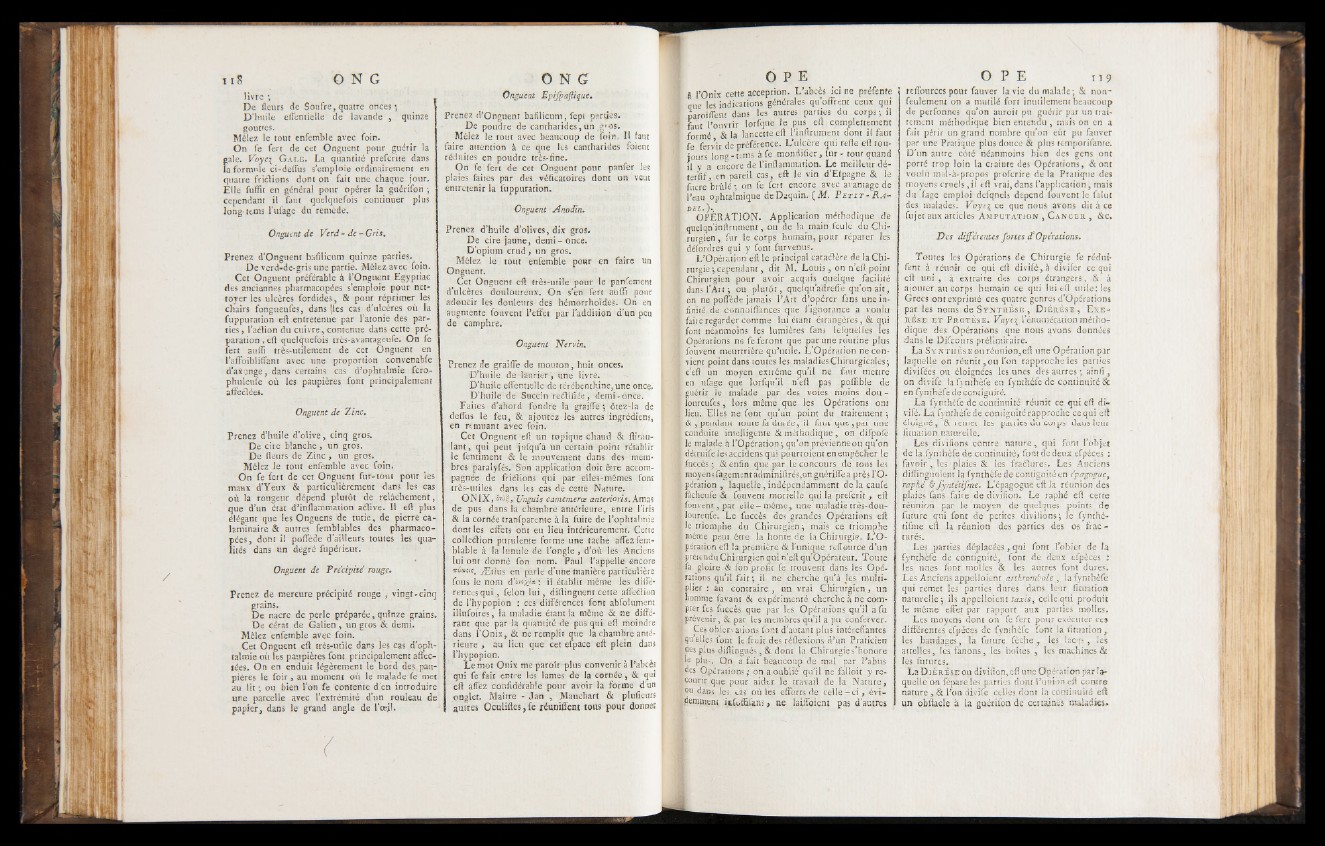 118 ONG
livre ;
De fleurs de Soufre, quatre onces ;
D'huile essentielle de lavande , quinze
gouttes.
Mêlez le tout ensemble avec soin.
On se sert de cet Onguent pour guérir la
gale. Voyez GALE. La quantité prescrite dans
la formule ci-dessus s'emploie ordinairement en
quatre frictions dont on fait une chaque jour.
Elle suffit en général pour opérer la guérison ;
cependant il faut quelquefois continuer plus
long-tems l'usage du remède.
Onguent de Verd-de-Gris.
Prenez d'Onguent basilicum quinze parties.
De verd-de-gris une partie. Mêlez avec soin.
Cet Onguent préférable à l'Onguent Egyptiac
des anciennes pharmacopées s'emploie pour net-
toyer les ulcères sordides, & pour réprimer les
chairs fongueuses, dans les cas d'ulcères où la
suppuration est entretenue par l'atonie des par-
ties, l'action du cuivre, contenue dans cette pré-
paration, est quelquefois très-avantageuse. On se
sert aussi très-utilement de cet Onguent en
l'affoiblissant avec une proportion convenable
d'axonge, dans certains cas d'ophtalmie scro-
phuleuse où les paupières sont principalement
affectées.
Onguent de Zinc.
Prenez d'huile d'olive, cinq gros.
De cire blanche, un gros.
De fleurs de Zinc, un gros.
Mêlez le tout ensemble avec soin.
On se sert de cet Onguent sur-tout pour les
maux d'Yeux & particulièrement dans les cas
où la rougeur dépend plutôt de relâchement,
que d'un état d'inflammation active. Il est plus
élégant que les Onguens de tutie, de pierre ca-
laminaire & autres semblables des pharmaco-
pées, dont il possède d'ailleurs toutes les qua-
lités dans un degré supérieur.
Onguent de Précipité rouge.
Prenez de mercure précipité rouge , vingt-cinq
grains.
De nacre de perle préparée, quinze grains.
De cérat de Galien, un gros & demi.
Mêlez ensemble avec soin.
Cet Onguent est très-utile dans les cas d'oph-
talmie où les paupières sont principalement affec-
tées. On en enduit légèrement le bord des pau-
pières le soir, au moment où le malade se met
au lit ; ou bien l'on se contente d'en introduire
une parcelle avec l'extrémité d'un rouleau de
papier, dans le grand angle de l'œil.
ONG
Onguent Epispastique.
Prenez d'Onguent basilicum, sept parties.
De poudre de cantharides, un gros.
Mêlez le tout avec beaucoup de soin. Il faut
faire attention à ce que les cantharides soient
réduites en poudre très-fine.
On se sert de cet Onguent pour panser les
plaies faites par des vésicatoires dont on veut
entretenir la suppuration.
Onguent Anodin.
Prenez d'huile d'olives, dix gros.
De cire jaune, demi-once.
D'opium crud, un gros.
Mêlez le tout ensemble pour en faire un
Onguent.
Cet Onguent est très-utile pour le pansement
d'ulcères douloureux. On s'en sert aussi pour
adoucir les douleurs des hémorrhoïdes. On en
augmente souvent l'effet par l'addition d'un peu
de camphre.
Onguent Nervin.
Prenez de graisse de mouton, huit onces.
D'huile de laurier, une livre.
D'huile essentielle de térébenthine, une once.
D'huile de Succin rectifiée, demi-once.
Faites d'abord fondre la graisse ; ôtez-la de
dessus le feu, & ajoutez les autres ingrédiens,
en remuant avec soin.
Cet Onguent est un topique chaud & stimu-
lant, qui peut jusqu'à un certain point rétablir
le sentiment & le mouvement dans des mem-
bres paralysés. Son application doit être accom-
pagnée de frictions qui par elles-mêmes sont
très-utiles dans les cas de cette Nature.
ONIX, Unguis cameneræ anterioris. Amas
de pus dans la chambre antérieure, entre l'iris
& la cornée transparente à la suite de l'ophtalmie
dont les effets ont eu lieu intérieurement. Cette
collection purulente forme une tache assez sem-
blable à la lunule de l'ongle, d'où les Anciens
lui ont donné son nom. Paul l'appelle encore
Ætius en parle d'une manière particulière
sous le nom d' il établit même les diffé-
rences qui, selon lui, distinguent cette affection
de l'hypopion : ces différences sont absolument
illusoires, la maladie étant la même & ne diffé-
rant que par la quantité de pus qui est moindre
dans l'Onix, & ne remplit que la chambre anté-
rieure, au lieu que cet espace est plein dans
l'hypopion.
Le mot Onix me paroît plus convenir à l'abcès
qui se fait entre les lames de la cornée, & qui
est assez considérable pour avoir la forme d'un
onglet. Maitre-Jan, Mauchart & plusieurs
autres Oculistes, se réunissent tous pour donner
OPE
à l'Onix cette acception. L'abcès ici ne présente
que les indications générales qu'offrent ceux qui
paroissent dans les autres parties du corps ; il
faut l'ouvrir lorsque le pus est complettement
formé, & la lancette est l'instrument dont il faut
se servir de préférence. L'ulcère qui reste est tou-
jours long-tems à se mondifier, sur-tout quand
il y a encore de l'inflammation. Le meilleur dé-
tersif, en pareil cas, est le vin d'Espagne & le
sucre brûlé ; on se sert encore avec avantage de
l'eau ophtalmique de Daquin. (M. PETIT-RA-
DEL.).
OPÉRATION. Application méthodique de
quelqu'instrument, ou de la main seule du Chi-
rurgien, sur le corps humain, pour réparer les
désordres qui y sont survenus.
L'Opération est le principal caractère de la Chi-
rurgie ; cependant, dit M. Louis, on n'est point
Chirurgien pour avoir acquis quelque facilité
dans l'Art ; ou plutôt, quelqu'adresse qu'on ait,
on ne possède jamais l'Art d'opérer sans une in-
finité de connoissances que l'ignorance a voulu
faire regarder comme lui étant étrangères, & qui
sont néanmoins les lumières sans lesquelles les
Opérations ne se feront que par une routine plus
souvent meurtrière qu'utile. L'Opération ne con-
vient point dans toutes les maladies Chirurgicales;
c'est un moyen extrême qu'il ne faut mettre
en usage que lorsqu'il n'est pas possible de
guérir le malade par des voies moins dou-
loureuses, lors même que les Opérations ont
lieu. Elles ne sont qu'un point du traitement ;
& , pendant toute sa durée, il faut que, par une
conduite intelligente & méthodique, on dispose
le malade à l'Opération ; qu'on prévienne ou qu'on
détruise les accidens qui pourroient en empêcher le
succès ; & enfin que par le concours de tous les
moyens sagement administrés, on guérisse après l'O-
pération, laquelle, indépendamment de la cause
fâcheuse & souvent mortelle qui la prescrit, est
souvent, par elle-même, une maladie très-dou-
loureuse. Le succès des grandes Opérations est
le triomphe du Chirurgien ; mais ce triomphe
même peut être la honte de la Chirurgie. L'O-
pération est la première & l'unique ressource d'un
prétendu Chirurgien qui n'est qu'Opérateur. Toute
sa gloire & son profit se trouvent dans les Opé-
rations qu'il fait ; il ne cherche qu'à les multi-
plier : au contraire, un vrai Chirurgien, un
homme savant & expérimenté cherche à ne com-
pter ses succès que par les Opérations qu'il a su
prévenir, & par les membres qu'il a pu conserver.
Ces observations sont d'autant plus intéressantes
qu'elles sont le fruit des réflexions d'un Praticien
des plus distingués, & dont la Chirurgie s'honore
le plus. On a fait beaucoup de mal par l'abus
des Opérations ; on a oublié qu'il ne falloit y re-
courir que pour aider le travail de la Nature,
ou dans les cas où les efforts de celle-ci, évi-
demment insuffisans, ne laissoient pas d'autres
OPE 119
ressources pour sauver la vie du malade ; & non-
seulement on a mutilé fort inutilement beaucoup
de personnes qu'on auroit pu guérir par un trai-
tement méthodique bien entendu, mais on en a
fait périr un grand nombre qu'on eût pu sauver
par une Pratique plus douce & plus temporisante.
D'un autre côté néanmoins bien des gens ont
porté trop loin la crainte des Opérations, & ont
voulu mal-à-propos proscrire de la Pratique des
moyens cruels, il est vrai, dans l'application, mais
du sage emploi desquels dépend souvent le salut
des malades. Voyez ce que nous avons dit à ce
sujet aux articles AMPUTATION, CANCER, &c.
Des différentes sortes d'Opérations.
Toutes les Opérations de Chirurgie se rédui-
sent à réunir ce qui est divisé, à diviser ce qui
est uni, à extraire des corps étrangers, & à
ajouter au corps humain ce qui lui est utile: les
Grecs ont exprimé ces quatre genres d'Opérations
par les noms de SYNTHÈSE, DIÉRÈSE, EXÉ-
RÈSE ET PROTÈSE. Voyez l'énumération métho-
dique des Opérations que nous avons données
dans le Discours préliminaire.
La SYNTHÈSE ou réunion, est une Opération par
laquelle on réunit, ou l'on rapproche les parties
divisées ou éloignées les unes des autres ; ainsi,
on divise la synthèse en synthèse de continuité &
en synthèse de contiguité.
La synthèse de continuité réunit ce qui est di-
visé. La synthèse de contiguité rapproche ce qui est
éloigné, & remet les parties du corps dans leur
situation naturelle.
Les divisions contre nature, qui font l'objet
de la synthèse de continuité, sont de deux espèces :
savoir, les plaies & les fractures. Les Anciens
distinguoient la synthèse de contiguité en épagogue,
raphé & synthétisme. L'épagogue est la réunion des
plaies sans faire de division. Le raphé est cette
réunion par le moyen de quelques points de
suture qui font de petites divisions ; le synthé-
tisme est la réunion des parties des os frac-
turés.
Les parties déplacées, qui font l'objet de la
synthèse de contiguité, sont de deux espèces :
les unes sont molles & les autres sont dures.
Les Anciens appelloient arthrembole, la synthèse
qui remet les parties dures dans leur situation
naturelle ; ils appelloient taxis, celle qui produit
le même effet par rapport aux parties molles.
Les moyens dont on se sert pour exécuter ces
différentes espèces de synthèse sont la situation,
les bandages, la suture sèche, les lacqs, les
attelles, les fanons, les boîtes, les machines &
les sutures.
La DIÉRÈSE ou division, est une Opération par la-
quelle on sépare les parties dont l'union est contre
nature, & l'on divise celles dont la continuité est
un obstacle à la guérison de certaines maladies.